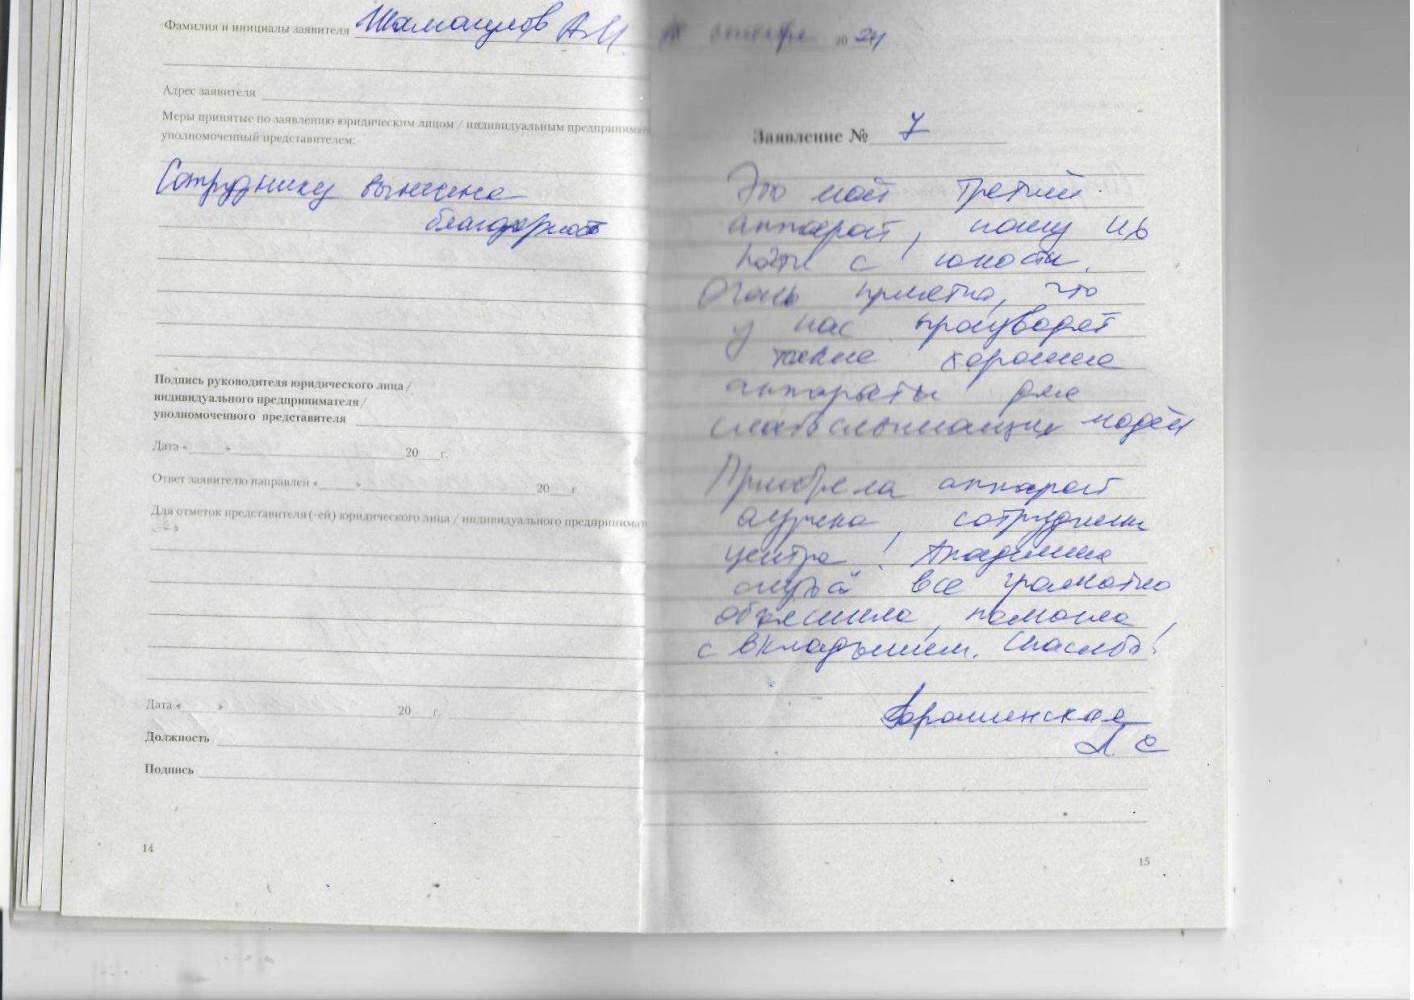 Фамилия и инициалы заявителя Шамагулов А.И.
Адрес заявителя
Меры принятые по заявлению юридическим лицом / индивидуальным предпринимат
уполномоченный представителем:
Сотруднику вынесена
благодарность
Подпись руководителя юридического лица /
индивидуального предпринимателя /
уполномоченного представителя
Дата « » 20 г.
Ответ заявителю направлен « » 20 г
Для отметок представителя (-ей) юридического лица / индивидуального предпринимат
Дата « » 20 г.
Должность
Подпись
14
октября 20 24
Заявление № 7
Это мой третий
аппарат, ношу их
почти с юности.
Очень приятно, что
у нас производят
такие хорошие
аппараты для
слабослышащих людей
Приобрела аппарат
сотрудники
центра! Академика
слуха все грамотно
объяснила, помогла
с вкладышем. Спасибо!
Л С
15